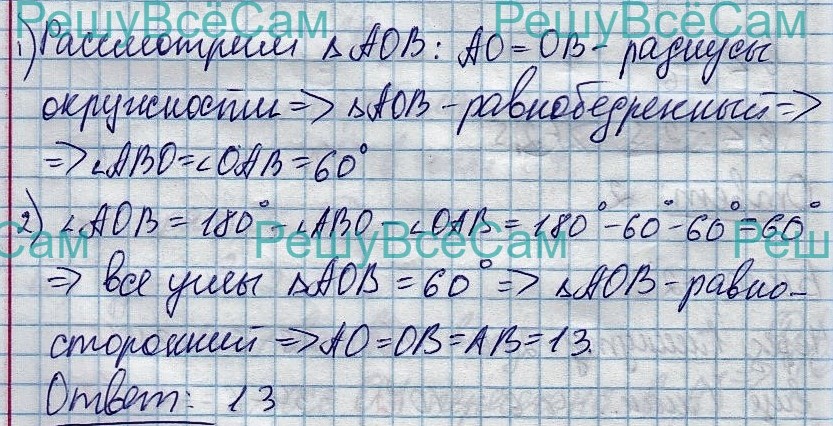 РешуВсёСам РешуВсёСам
1) Рассмотрим △AOB: AO=OB- радиусы
окружности => △AOB-равнобедренный=>
=> ∠ABO=∠OAB=60°
2) ∠AOB=180°-∠ABO-∠OAB=180°-60°-60°=60°
ёСам РешуВсёСам Реш
=> все углы △AOB=60° => △AOB-равно-
сторонний => AO=OB=AB=13.
Ответ: 13